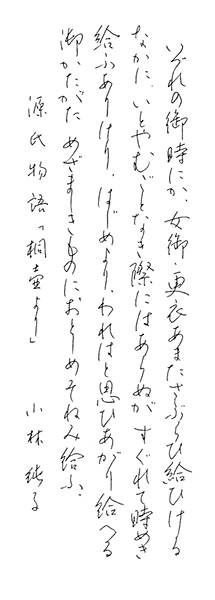 いづれの御時にか、女御・更衣あまたさぶらひ給ひける
なかに、いとやむごとなき際にはあらぬが すぐれて時めき
給ふありけり。はじめより、われはと思ひあがり給へる
御かたがた めざましきものにおとしめそねみ給ふ、
源氏物語「桐壷より」
小林